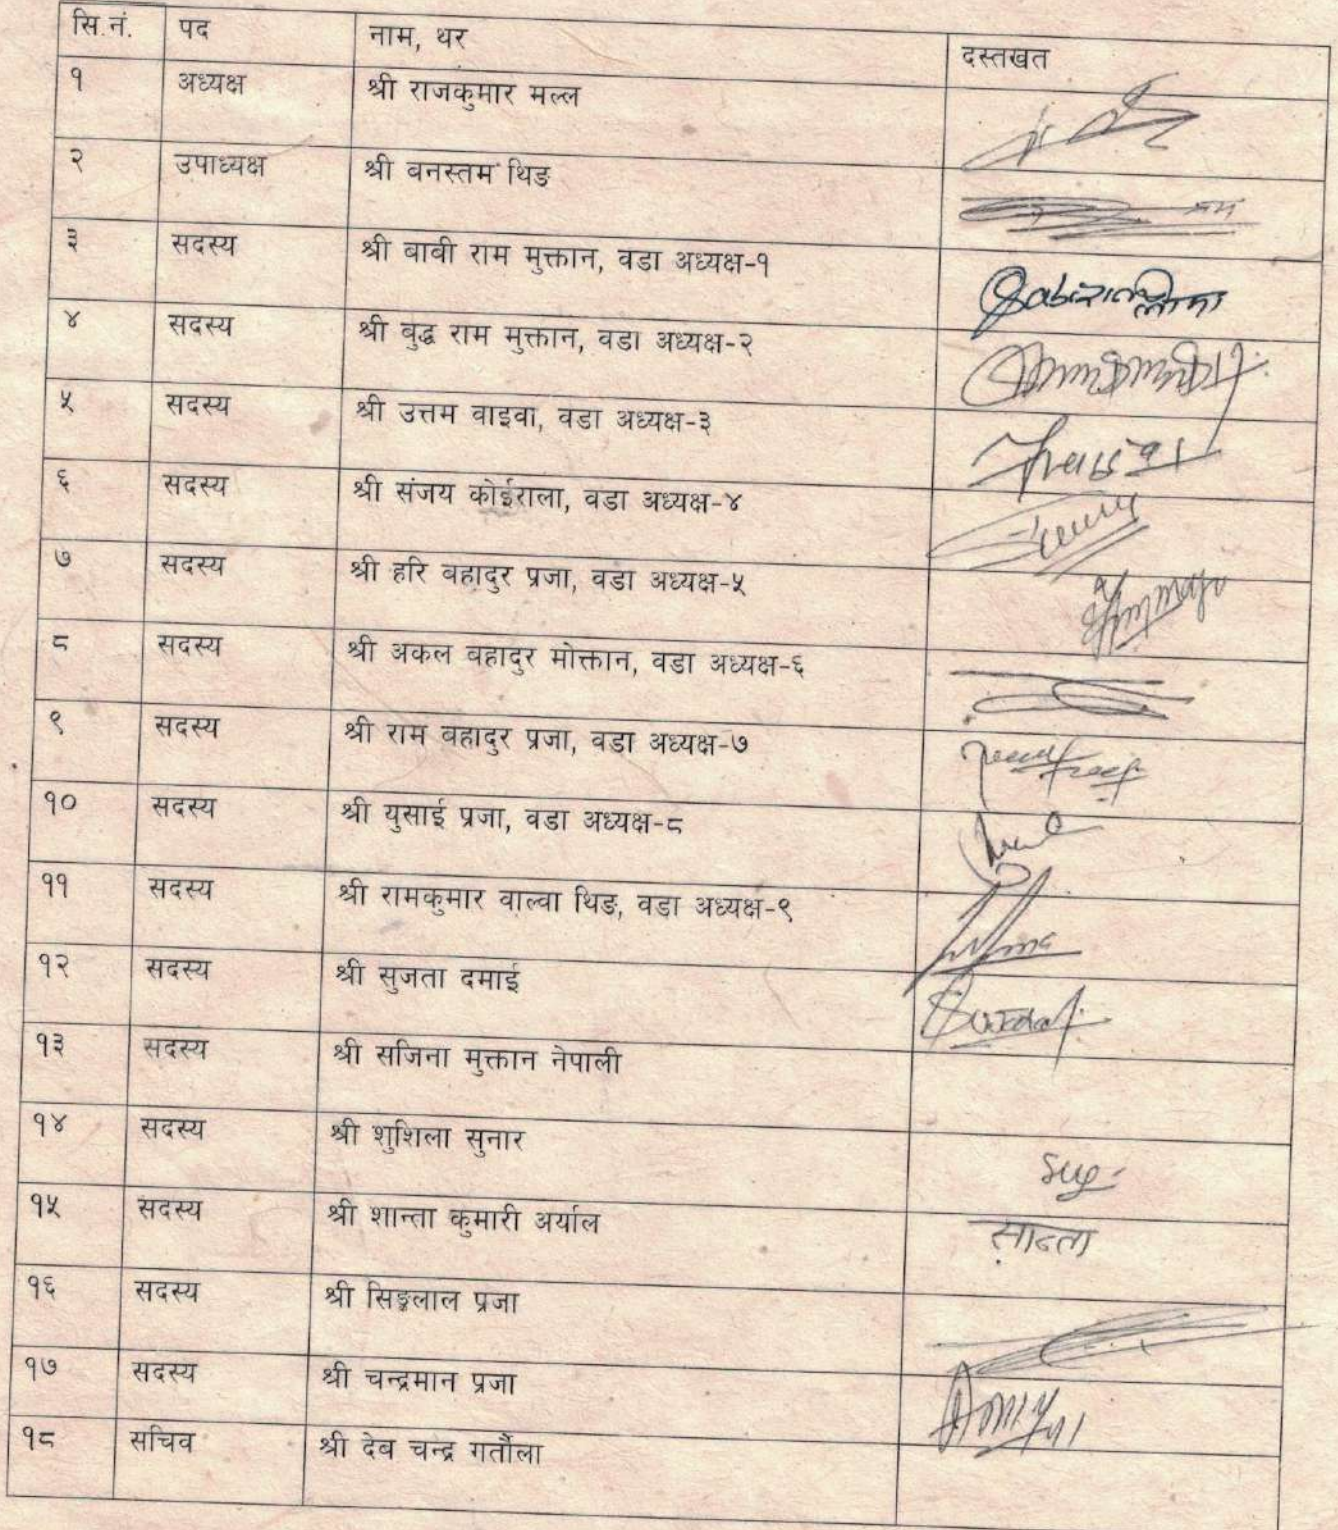 सि.नं. पद नाम, थर दस्तखत
१ अध्यक्ष श्री राजकुमार मल्ल
२ उपाध्यक्ष श्री बनस्तम थिङ
३ सदस्य श्री बावी राम मुक्तान, वडा अध्यक्ष-१
४ सदस्य श्री बुद्ध राम मुक्तान, वडा अध्यक्ष-२
५ सदस्य श्री उत्तम वाइवा, वडा अध्यक्ष-३
६ सदस्य श्री संजय कोईराला, वडा अध्यक्ष-४
७ सदस्य श्री हरि बहादुर प्रजा, वडा अध्यक्ष-५
८ सदस्य श्री अकल बहादुर मोक्तान, वडा अध्यक्ष-६
९ सदस्य श्री राम बहादुर प्रजा, वडा अध्यक्ष-७
१० सदस्य श्री युसाई प्रजा, वडा अध्यक्ष-८
११ सदस्य श्री रामकुमार वाल्वा थिङ, वडा अध्यक्ष-९
१२ सदस्य श्री सुजता दमाई
१३ सदस्य श्री सजिना मुक्तान नेपाली
१४ सदस्य श्री शुशिला सुनार
१५ सदस्य श्री शान्ता कुमारी अर्याल सान्ता
१६ सदस्य श्री सिङ्गलाल प्रजा
१७ सदस्य श्री चन्द्रमान प्रजा
१८ सचिव श्री देब चन्द्र गर्तौला